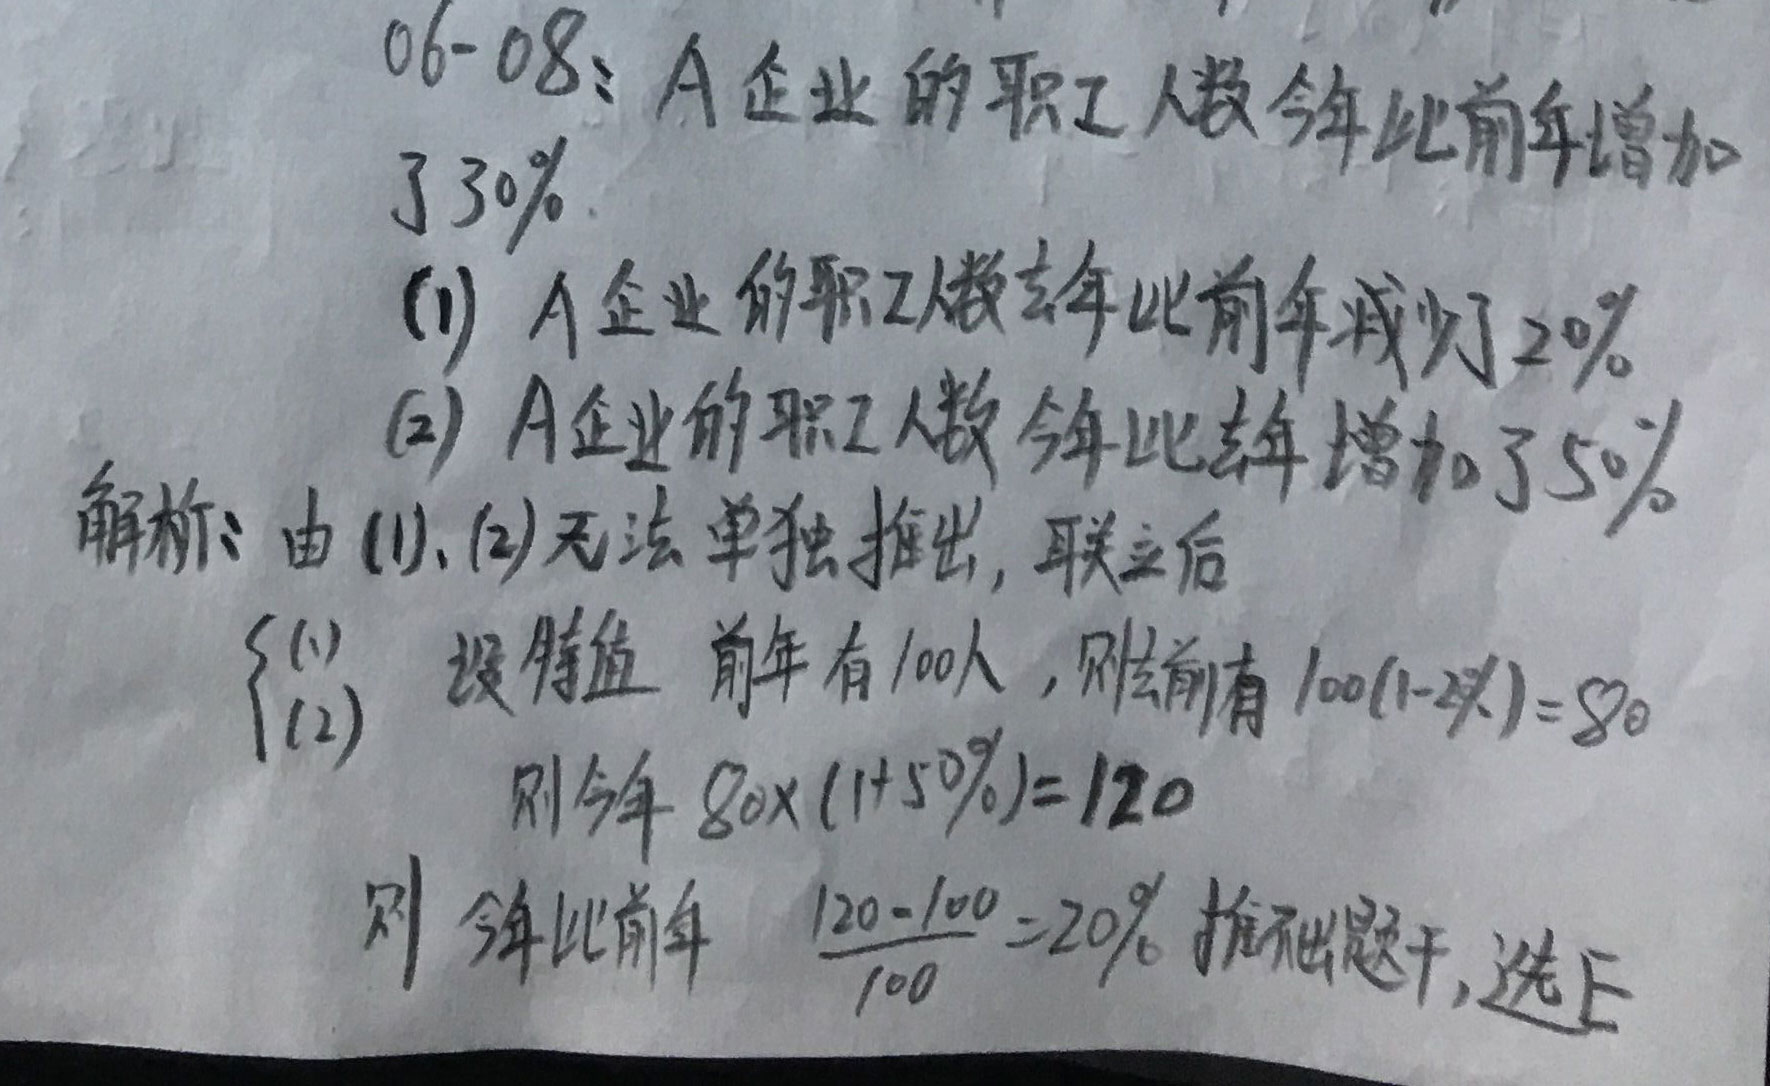 06-08: A企业的职工人数今年比前年增加
了30%.
(1) A企业的职工人数去年比前年减少了20%
(2) A企业的职工人数今年比去年增加了50%
解析: 由(1)、(2)无法单独推出, 联立后
{(1) (2) 设特值 前年有100人, 则去前有100(1-2%)=80
则今年 80×(1+50%)=120
则 今年比前年 120-100/100=20% 推不出题干, 选E